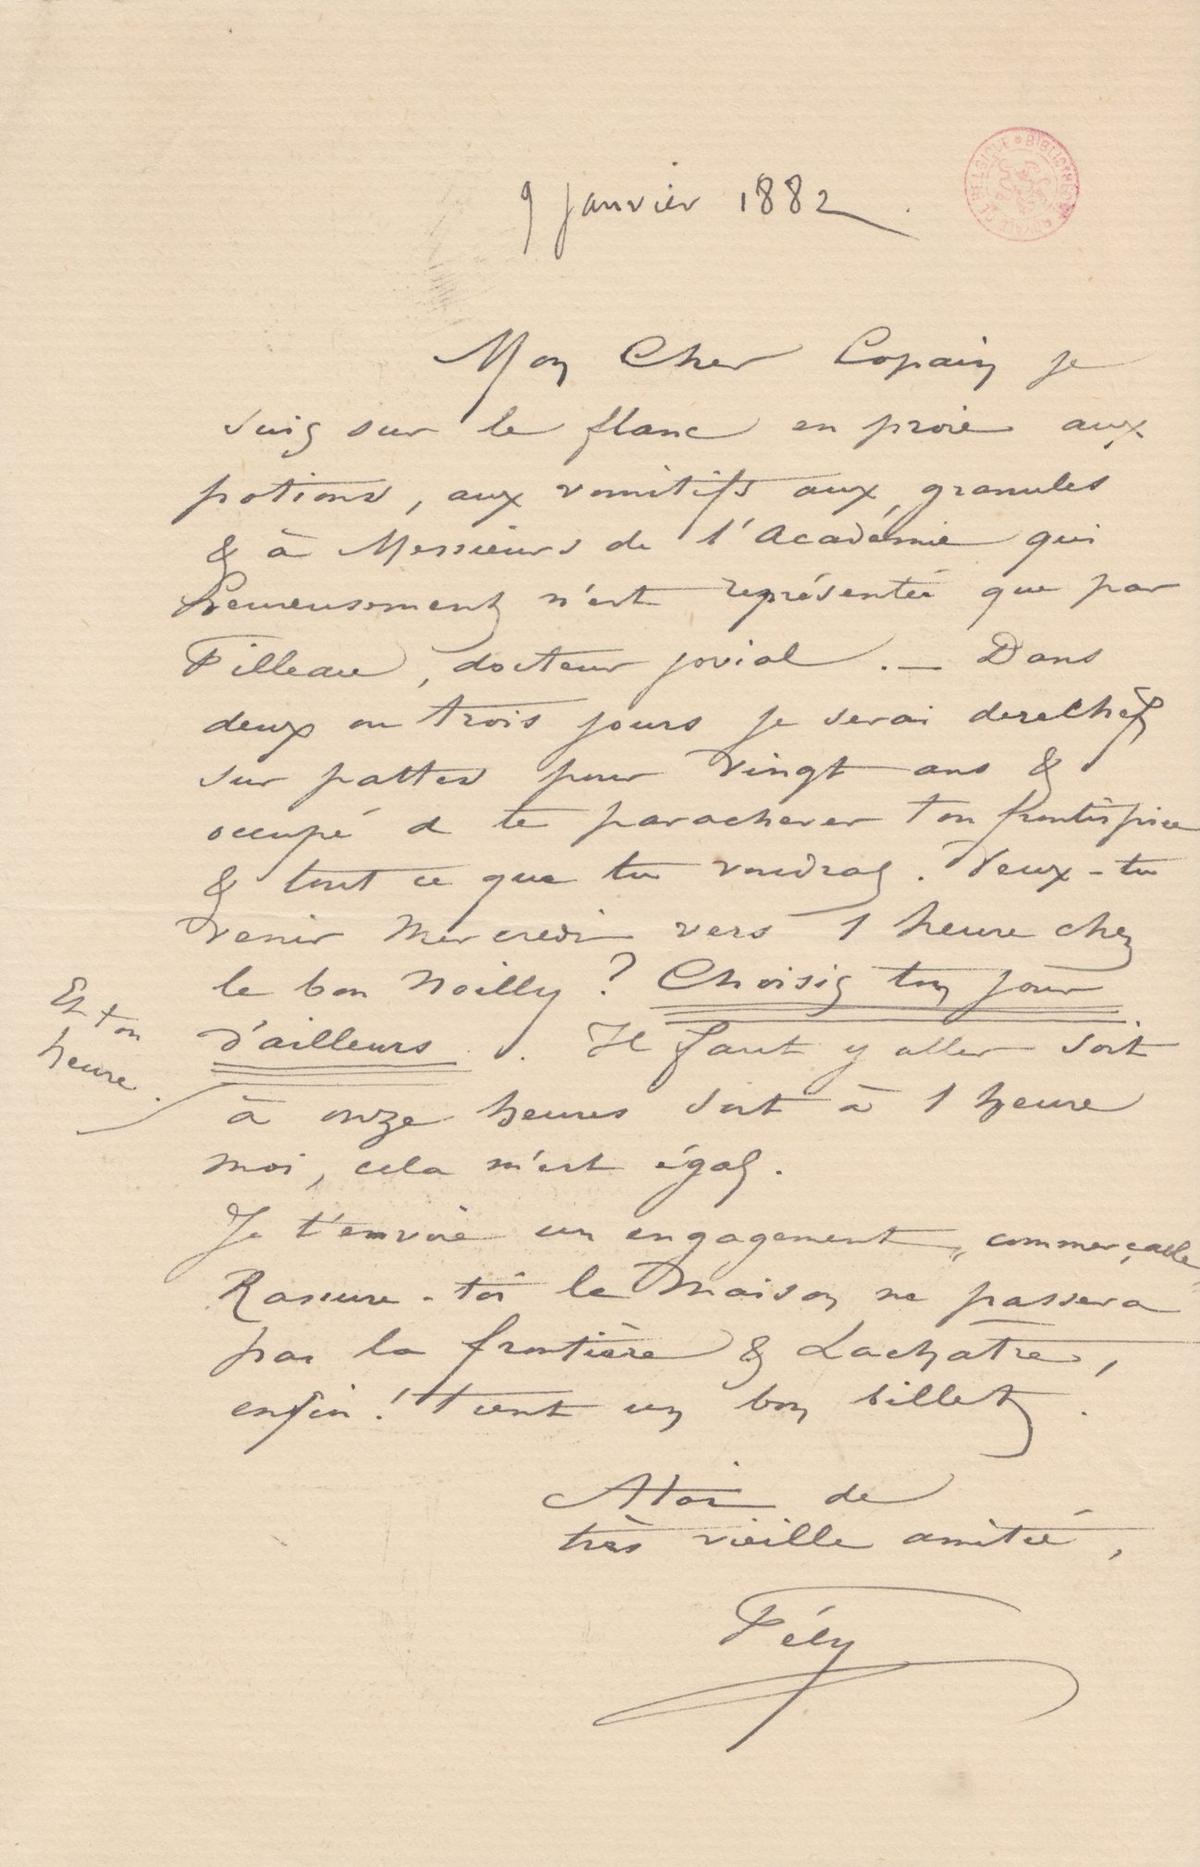 9 janvier 1882
Mon Cher Copain je
suis sur le flanc en proie aux
potions, aux vomitifs aux granules
& à Messieurs de l'Académie qui
heureusement n'est représentée que par
Filleau, docteur jovial. — Dans
deux ou trois jours je serai derechef
sur pattes pour vingt ans &
occupé à te parachever ton frontispice
& tout ce que tu voudras. Veux-tu
venir Mercredi vers 1 heure chez
le bon Noilly? Choisis ton jour
d'ailleurs. Il faut y aller soit
Et ton
heure.
à onze heures soit à 1 heure
moi, cela m'est égal.
Je t'envoie un engagement „commerçable"
Rassure-toi la Maison ne passera
pas la frontière & Lachatre,
enfin! tient un bon billet.
A toi de
très vieille amitié,
Fély